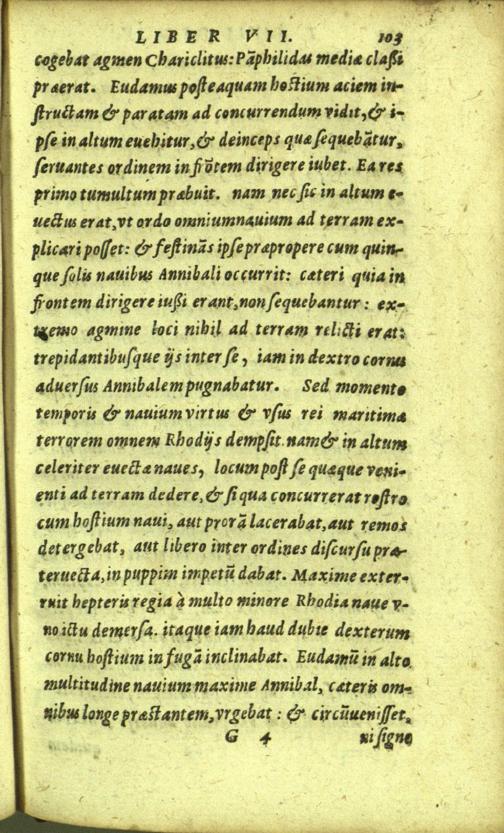 LIBER VII. 103
cogebat agmen Chariclitus: Pãphilidas mediæ claßi
præerat. Eudamus posteaquam hostium aciem in-
structam & paratam ad concurrendum vidit, & i-
pse in altum euehitur, & deinceps quæ sequebãtur,
seruantes ordinem in frõtem dirigere iubet. Ea res
primo tumultum præbuit. nam nec sic in altum e-
uectus erat, vt ordo omnium nauium ad terram ex-
plicari posset: & festinãs ipse præpropere cum quin-
que solis nauibus Annibali occurrit: cæteri quia in
frontem dirigere iußi erant, non sequebantur: ex-
tremo agmine loci nihil ad terram relicti erat:
trepidantibusque ijs inter se, iam in dextro cornu
aduersus Annibalem pugnabatur. Sed momento
temporis & nauium virtus & vsus rei maritimæ
terrorem omnem Rhodijs dempsit. nam & in altum
celeriter euectæ naues, locum post se quæque veni-
enti ad terram dedere, & si qua concurrerat rostro
cum hostium naui, aut prorã lacerabat, aut remos
detergebat, aut libero inter ordines discursu præ-
teruecta, in puppim impetũ dabat. Maxime exter-
ruit hepteris regia à multo minore Rhodia naue v-
no ictu demersa. itaque iam haud dubie dexterum
cornu hostium in fugã inclinabat. Eudamũ in alto
multitudine nauium maxime Annibal, cæteris om-
nibus longe præstantem, vrgebat: & circũuenisset,
G 4 ni signo